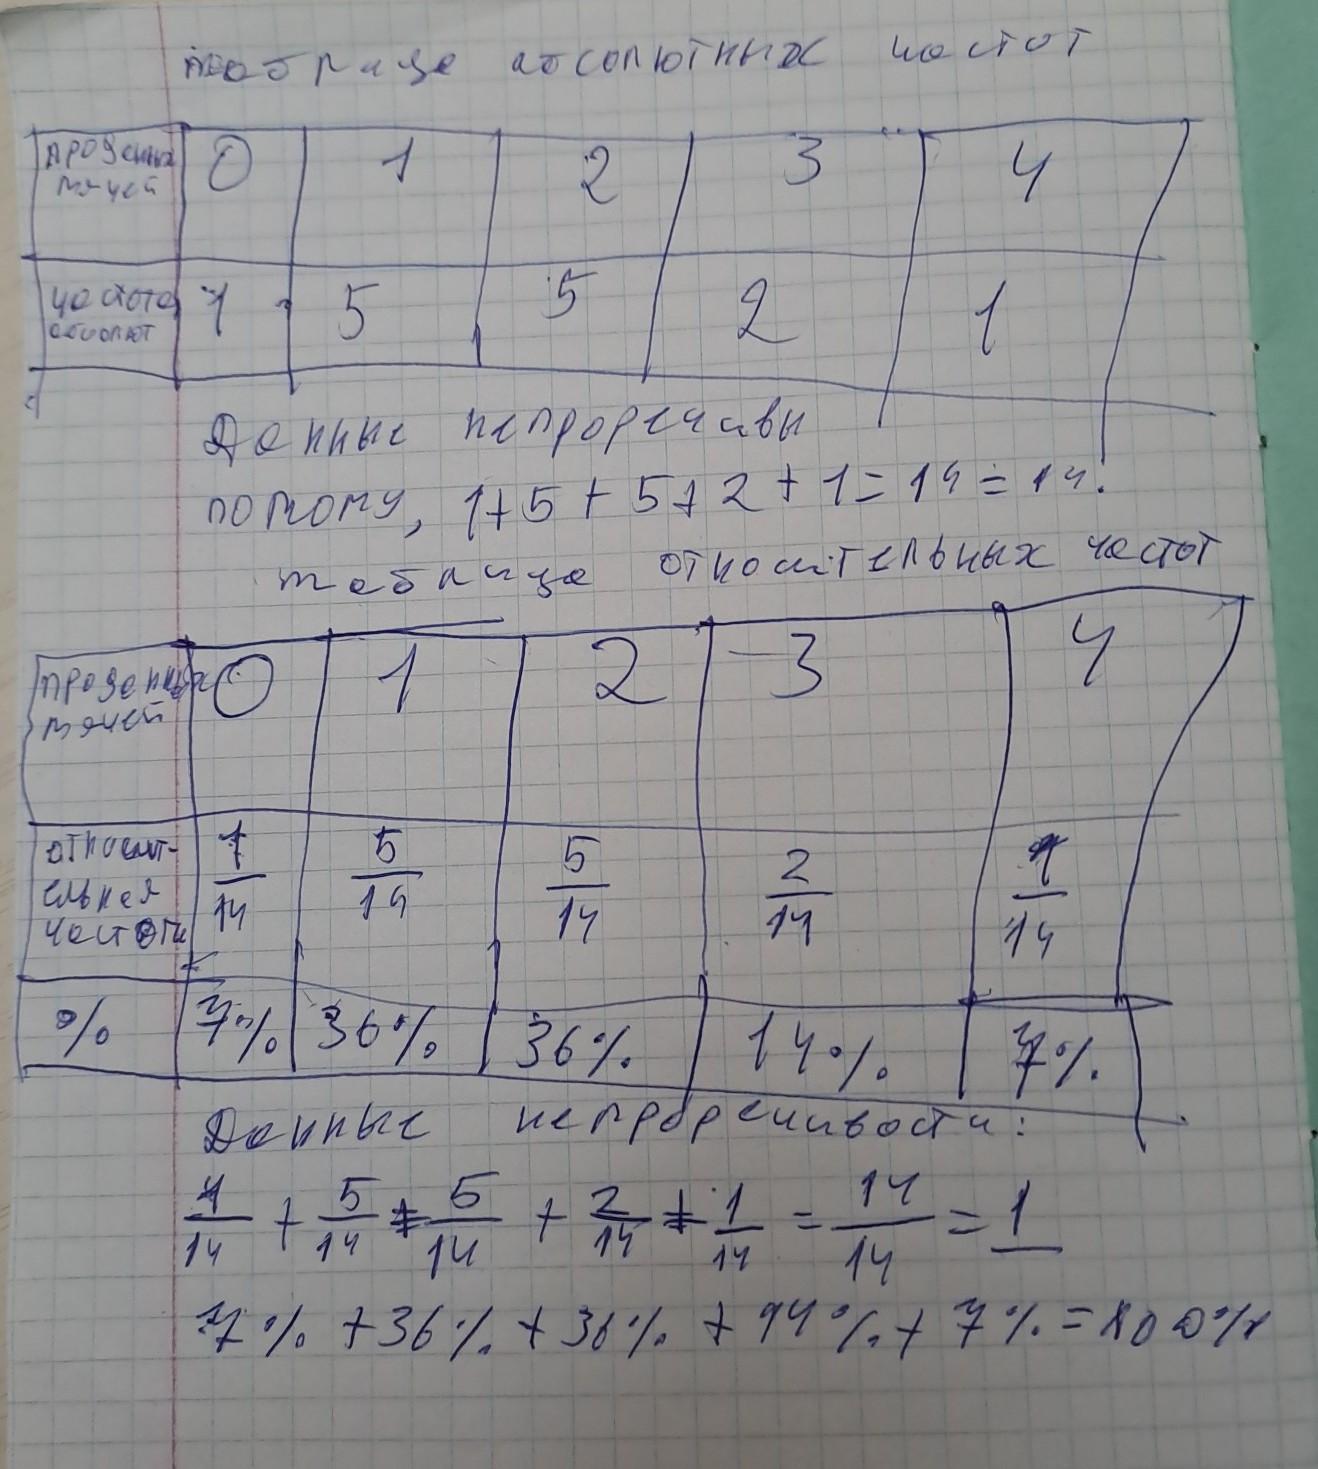 таблица абсолютных частот
проденных мячей 0 1 2 3 4
частота абсолют 1 5 5 2 1
Данные непроречивы
потому, 1+5+5+2+1=14=14.
таблица относительных частот
проденных мячей 0 1 2 3 4
относит-ельная частота 1/14 5/14 5/14 2/14 1/14
% 7% 36% 36% 14% 7%
Данные непроречивости:
1/14 + 5/14 + 5/14 + 2/14 + 1/14 = 14/14 = 1
7% + 36% + 36% + 14% + 7% = 100%